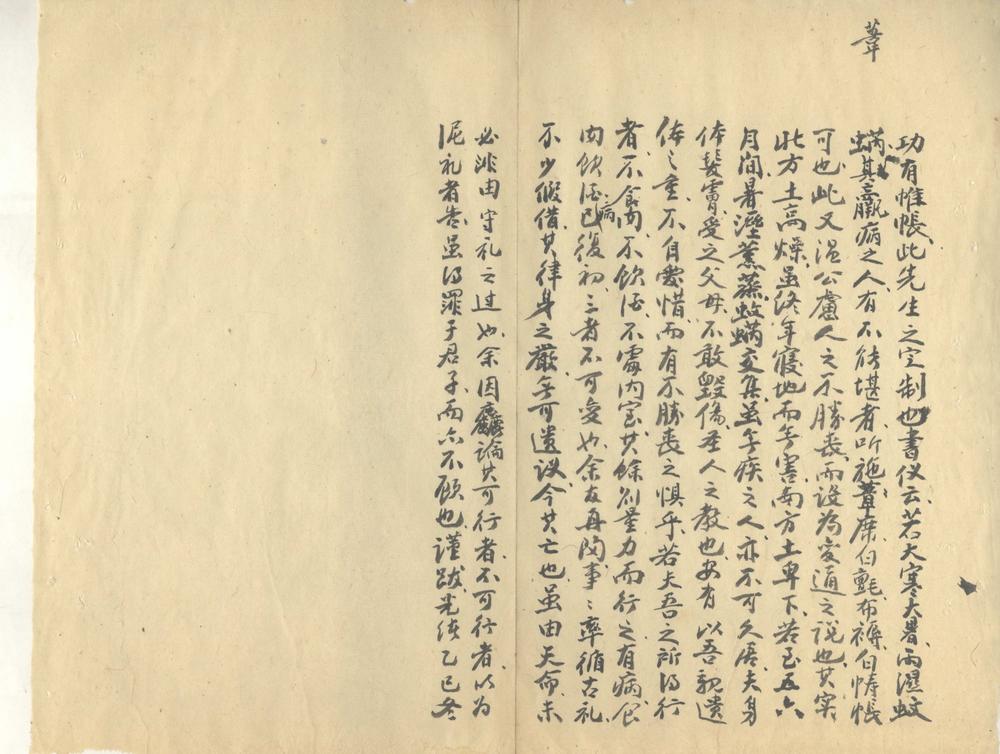 葦
功有帷帳此先生之定制也書仪云若大寒大暑雨濕蚊
蜹其羸病之人有不能堪者听施葦席白氈布褥白帱帳
可也此又温公慮人之不勝丧而设為变通之说也其实
此方土高燥虽终年寝地而無害南方土卑下若至五六
月间暑溼薰蒸蚊蜹交集虽無疾之人亦不可久居夫身
体髮膚受之父母不敢毀傷圣人之教也安有以吾親遺
体之重不自爱惜而有不勝丧之惧乎若夫吾之所得行
者不食肉不饮酒不處内室其餘则量力而行之有病食
肉饮酒病已復初三者不可变也余友再陶事〻率循古礼
不少假借其律身之嚴無可遺议今其亡也虽由天命未
必非由守礼之过也余因论其可行者不可行者以为
泥礼者告虽得罪于君子而亦不顾也謹跋光绪乙巳冬